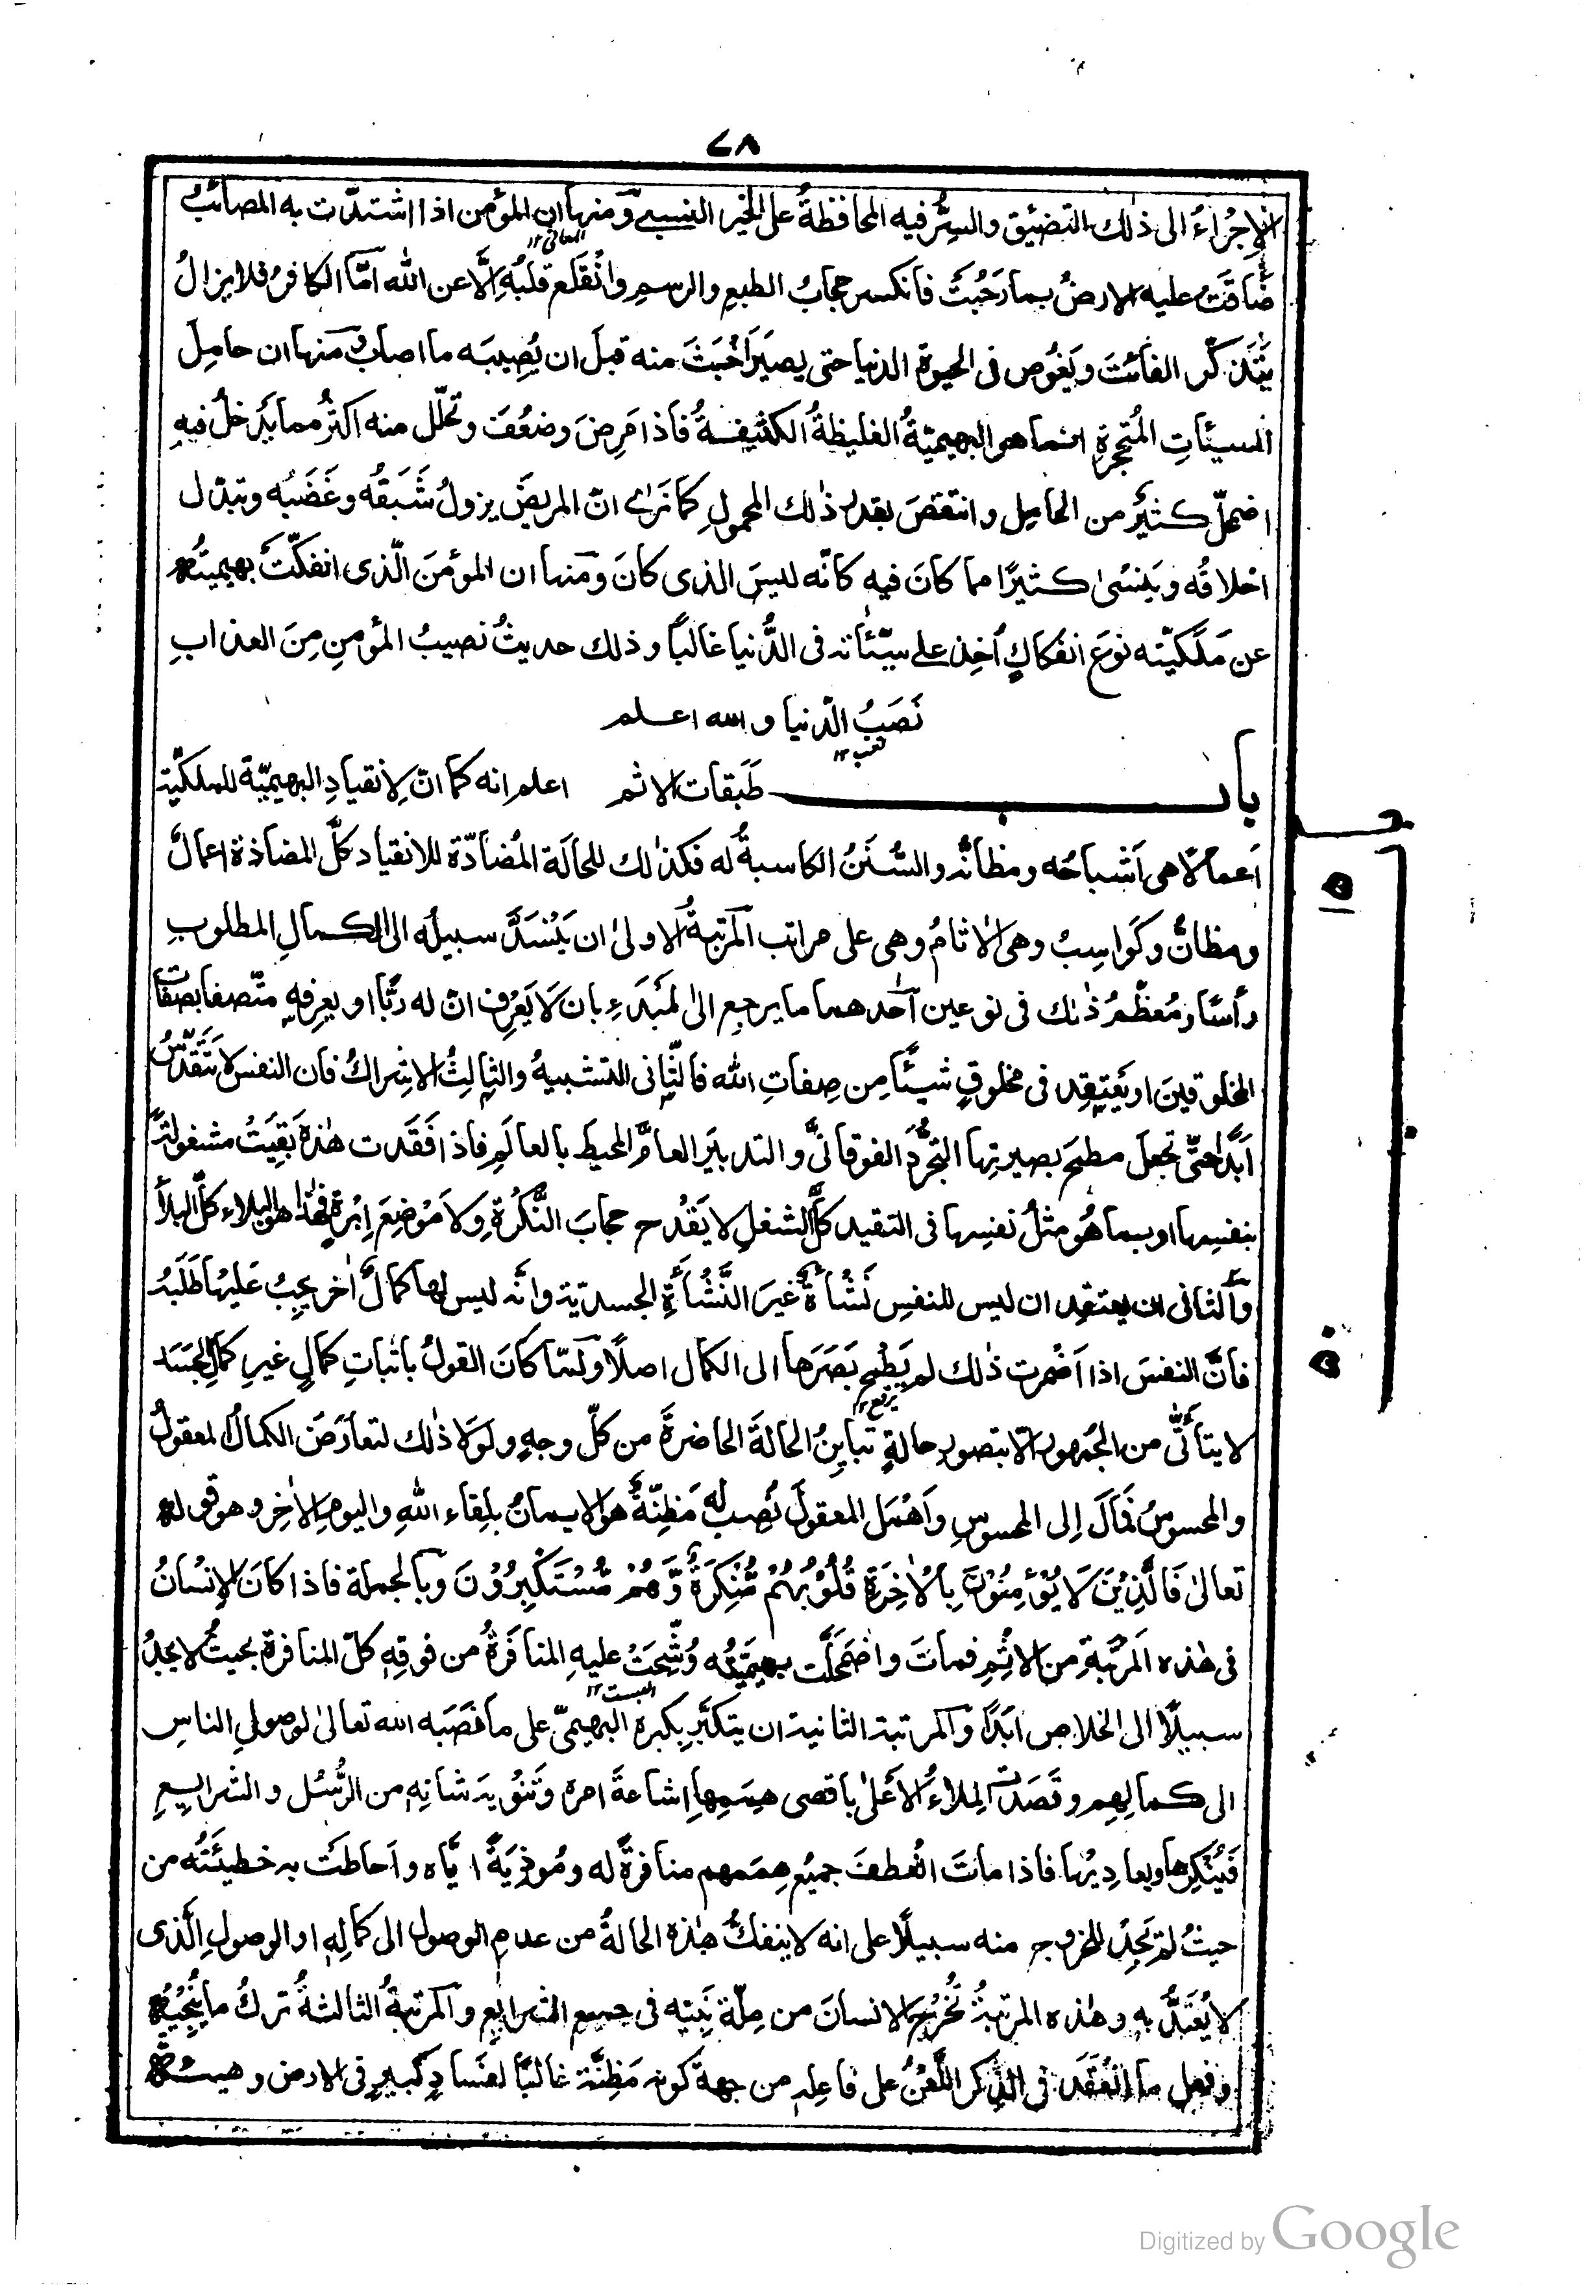 ٧٨
الاجزاءُ الى ذلك التضيّق والسِّرُّ فيه المحافظةُ على الخير النسبى ومنها ان المؤمن اذا اشتدّت به المصائبُ
ضَاقَتْ عليه الارضُ بما رَحُبَتْ فانكسر حجابُ الطبعِ والرسمِ وانْقَلَع قلبُه اِلَّا عن الله امّا الكافرُ فلا يزالُ
يَتَذكّر الفائتَ ويَغُوص فى الحيوة الدنيا حتى يصيَر اَخْبَثَ منه قبلَ ان يُصِيبَه ما اصابه ومنها ان حامِلَ
السيئاتِ المُتحجّرةِ انما هو البهيميّةُ الغليظةُ الكثيفةُ فاذا مَرِضَ وضعُفَ وتحلّل منه اكثرُ مما يَدخلُ فيه
اضمحلّ كثيرٌ من الحامِلِ وانتقصَ بقدر ذلك المحمولِ كما نَرٰى انّ المريضَ يزولُ شَبَقُه وغَضَبُه وتبدّل
اخلاقُه ويَنسٰى كثيرًا مما كانَ فيه كانّه ليسَ الذى كانَ ومنها ان المؤمنَ الّذى انفكّتْ بهيميتُه
عن مَلَكيّته نوعَ انفكاكٍ اُخِذ على سيّئاته فى الدُّنيا غالبًا وذلك حديثُ نصيبُ المؤمنِ مِنَ العذابِ
نَصَبُ الدّنيا والله اعلم
تعب١٢
باب طَبَقات الاثم اعلم انه كما انّ لِانقيادِ البهيميّة للملكيّة
اَعمالًا هى اَشباحُه ومظانُّه والسُّنَنُ الكاسبةُ له فكذٰلك للحالَة المُضادّة للانقياد كلَّ المضادة اعمالٌ
ومظانُّ وكَواسِبُ وهى الاٰثامُ وهى على مراتب المرتبةُ الاولىٰ ان يَنْسَدَّ سبيلُه الى الكمالِ المطلوبِ
رأسًا ومُعظَمُ ذٰلك فى نوعين احدهما ما يرجع الى المَبدَءِ بان لَا يَعْرِف انّ له ربًّا او يعرِفه متّصفا بصفات
المخلوقينَ او يَعتقِد فى مخلوقٍ شيئًا مِن صِفاتِ الله فالثّانى التشبيهُ والثالِثُ الاِشراكُ فان النفسَ لا تَتَقدّسُ
اَبَدًا حتّى تجعلَ مطمحَ بصيرتِها التجرُّدَ الفوقانىَّ والتدبيرَ العامَّ المحيطَ بالعالَمِ فاذا فَقَدت هٰذه بَقِيَتْ مشغولةً
بنفسِها او بما هُو مثلُ نفسِها فى التقيد كلَّ الشغلِ لا يَقْدح حجابَ النُّكْرَةِ ولا مَوْضِعَ اِبْرَةٍ فهٰذا هو البلاء كلّ البلاء
والثانى ان يعتقد ان ليس للنفسِ نَشْأةٌ غيرَ النَّشْأَةِ الجسديّة وانّه ليس لها كمالٌ اٰخر يجِبُ عَليها طَلَبُه
فانَّ النفسَ اذا اَضْمرت ذٰلك لم يَطمَح بَصَرَها الى الكمال اصلًا ولمّا كانَ القولُ باثباتِ كمالٍ غيرِ كمالِ الجَسَد
يرفع١٢
لا يتأتّٰى من الجُمهور الّا بتصور حالةٍ تبايِنُ الحالةَ الحاضرةَ من كلّ وجهٍ ولَولَا ذٰلك لتعارَضَ الكمالُ المعقولُ
والمحسوسُ فَمالَ اِلى المحسوسِ واَهْمَل المعقولَ نُصِب له مَظِنّةٌ هو الايمانُ بلِقاءِ اللّٰهِ واليومِ الاٰخِر وهو قوله
تعالىٰ فَالَّذِيْنَ لَا يُؤْمِنُوْنَ بِالْاٰخِرَةِ قُلُوْبُهُمْ مُّنْكِرَةٌ وَّهُمْ مُّسْتَكْبِرُوْنَ وبالجملة فاذا كانَ الاِنْسَانُ
فى هٰذه المَرتبةِ من الاثْمِ فماتَ واضمَحلَّت بهيميّتُه وُشِّحَتْ عليهِ المنافَرةُ من فوقِهٖ كلّ المنافرة بحيثُ لا يجدُ
البست١٢
سبيلًا الى الخلاصِ ابَدًا والمرتبة الثانية ان يتكبّرِ بكبرِه البهيمىّ على ما نصَبَه الله تعالىٰ لوصولِ الناسِ
الى كمالِهِم وقَصَدَت الملاءُ الاَعلىٰ باقصى هممِها اِشاعةَ امره وتَنْويهَ شانِهٖ من الرُّسُل والشرايعِ
فَيُنْكِرُها ويعادِيْها فاذا ماتَ انْعطفَ جميعُ هِمَمهِم منافرةً له ومُوذِيَةً ايّاه واَحاطَتْ به خطيئَتُه من
حيثُ لم يَجِدْ للخروجِ منه سبيلًا على انه لا ينفكُّ هٰذه الحالةُ من عدمِ الوصولِ الى كمالِهٖ او الوصولِ الّذى
لا يُعْتَدُّ به وهٰذه المرتبةُ تُخْرِجُ الانسانَ من مِلّة نَبيّه فى جميع الشرايعِ والمرتبةُ الثالثةُ تركُ ما يُنْجِيْه
وفعل ما انْعَقَد فى الذكر اللَّعْنُ على فاعِلِه من جهة كونه مَظِنَّة غالبًا لفَسادٍ كبيرٍ فى الارض وهيئته
Digitized by Google